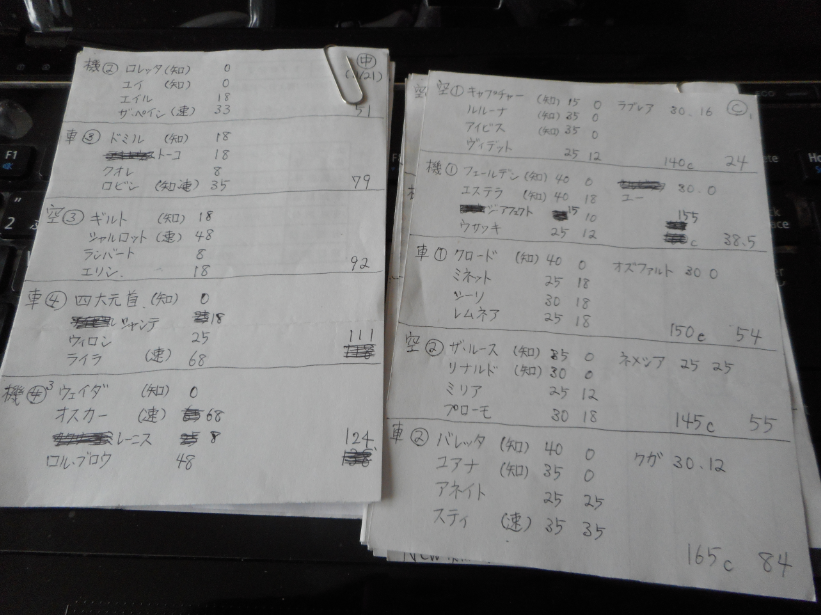 機② ロレッタ (知) 0 中
ユイ (知) 0
エイル 18
ザ・ペイン (速) 33 51
車③ ドミル (知) 18
トーコ 18
クオレ 8
ロビン (知速) 35 79
空③ ギルト (知) 18
シャルロット (速) 48
ランバート 8
エリン. 18 92
車④ 四大元首. (知) 0
ジャンテ 18
ウィロン 25 111
ライラ (速) 68
機 3 ウェイダ (知) 0
オスカー (速) 68
レーニス 8 124
ロル・ブロウ 48
空① キャプチャー (知) 15 0 ラブレア 30.16 C
ルルーナ (知) 35 0
アイビス (知) 35 0
ヴィテット 25 12 140c 24
機① フェールデン (知) 40 0 30.0
エステラ (知) 40 18 ユー
ジアフェクト 15 10 155
ウサッキ 25 12 c 38.5
車① クロード (知) 40 0 オズファルト 30 0
ミネット 25 18
シーリ 30 18
レムネア 25 18 150c 54
空② ザ・ルース (知) 35 0 ネメシア 25 25
リナルド (知) 30 0
ミリア 25 12
プローモ 30 18 145c 55
車② バレッタ (知) 40 0 クガ 30.12
ユアナ (知) 35 0
アネイト 25 25
スティ (速) 35 35
165c 84
F1
2